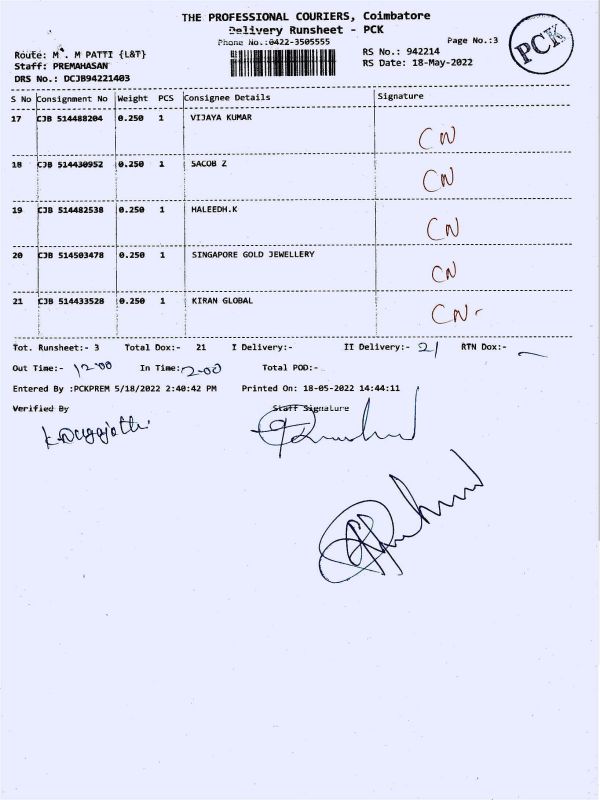 THE PROFESSIONAL COURIERS, Coimbatore
Delivery Runsheet - PCK
Phone No.:0422-3505555
Page No.:3
PCK
Route: M . M PATTI {L&T}
RS No.: 942214
Staff: PREMAHASAN
RS Date: 18-May-2022
DRS No.: DCJB94221403
S No Consignment No Weight PCS Consignee Details Signature
17 CJB 514488204 0.250 1 VIJAYA KUMAR CN
18 CJB 514430952 0.250 1 SACOB Z CN
19 CJB 514482538 0.250 1 HALEEDH.K CN
20 CJB 514503478 0.250 1 SINGAPORE GOLD JEWELLERY CN
21 CJB 514433528 0.250 1 KIRAN GLOBAL CN-
Tot. Runsheet:- 3 Total Dox:- 21 I Delivery:- II Delivery:- 21 RTN Dox:-
Out Time:- 12-00 In Time: 2-00 Total POD:-
Entered By :PCKPREM 5/18/2022 2:40:42 PM Printed On: 18-05-2022 14:44:11
Verified By Staff Signature